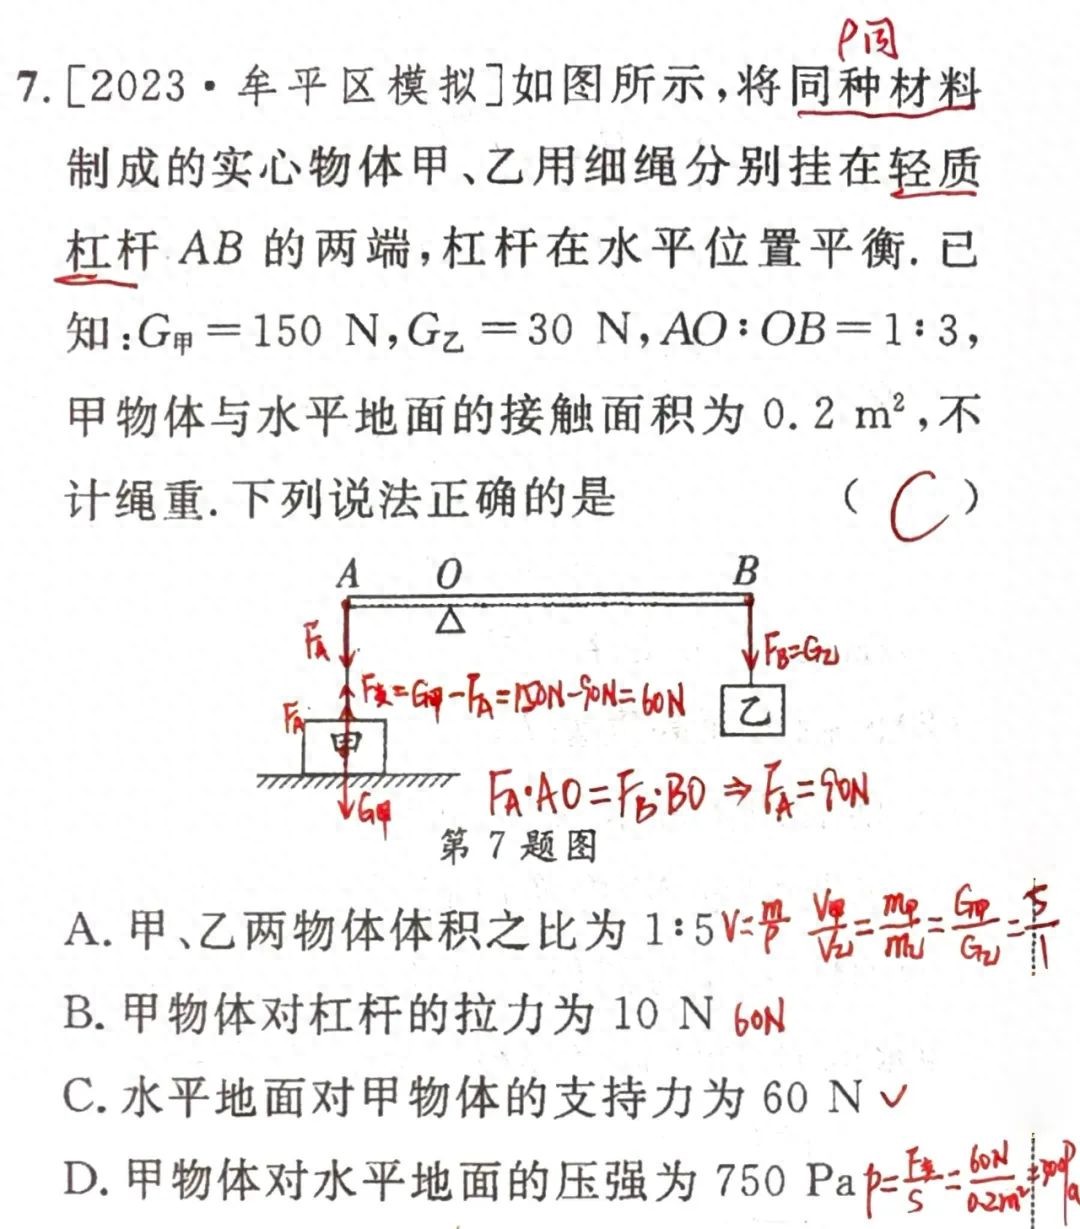 ρ同
7. [2023·牟平区模拟]如图所示,将同种材料
制成的实心物体甲、乙用细绳分别挂在轻质
杠杆 AB 的两端,杠杆在水平位置平衡. 已
知:G甲=150 N,G乙=30 N,AO∶OB=1∶3,
甲物体与水平地面的接触面积为 0.2 m²,不
计绳重. 下列说法正确的是 ( C )
A O B
FA FB=G乙
FA F支=G甲-FA=150N-90N=60N 乙
甲
G甲 FA·AO=FB·BO ⇒ FA=90N
第 7 题图
A. 甲、乙两物体体积之比为 1∶5 V=m/ρ V甲/V乙=m甲/m乙=G甲/G乙=5/1
B. 甲物体对杠杆的拉力为 10 N 60N
C. 水平地面对甲物体的支持力为 60 N ✓
D. 甲物体对水平地面的压强为 750 Pa p=F支/S=60N/0.2m²=300Pa